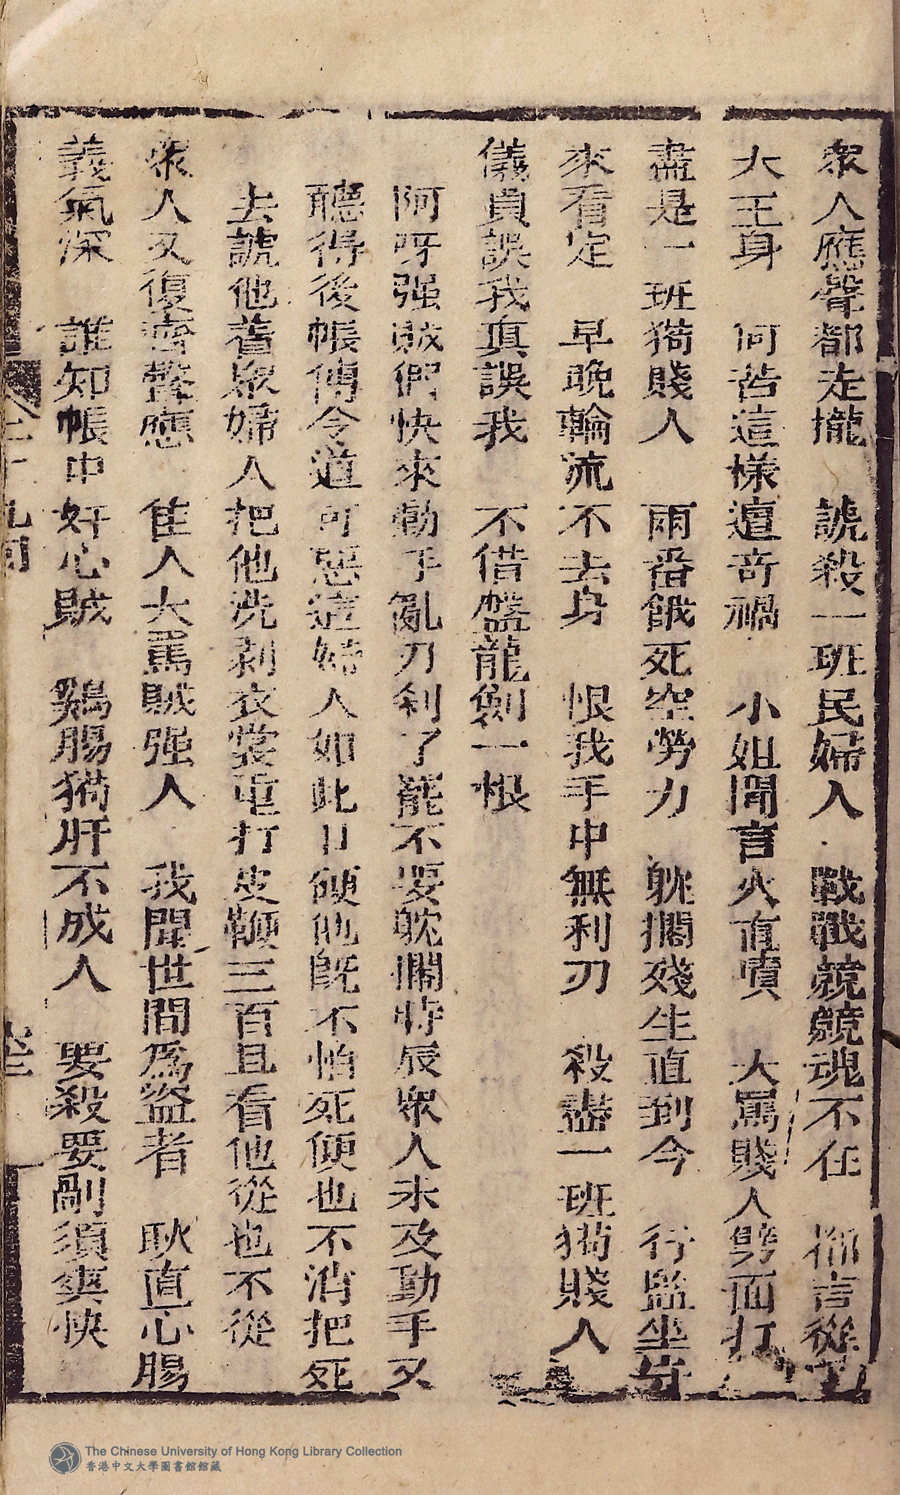 衆人應聲都走攏　諕殺一班民婦人　戰戰競競魂不在　都言從
大王身　何苦這樣遭奇禍　小姐聞言火直噴　大罵賤人劈面打
盡是一班猗賤人　兩番餓死空勞力　躭擱殘生直到今　行監坐守
來看定　早晚輪流不去身　恨我手中無利刃　殺盡一班猗賤人
儀貞誤我真誤我　不借盤龍劍一根
阿呀强贼們快來動手亂刀剁了罷不要躭擱時辰衆人未及動手又
聽得後帳傳令道可惡這婦人如此口硬他旣不怕死便也不消把死
去諕他著衆婦人把他洗剥衣裳重打皮鞭三百且看他從也不從
衆人又復齊聲應　隹人大罵賊强人　我聞世間爲盜者　耿直心腸
義氣深　誰知帳中奸心賊　鷄腸猗肝不成人　要殺要剮須爽快
十九回
The Chinese University of Hong Kong Library Collection
香港中文大學圖書館館藏